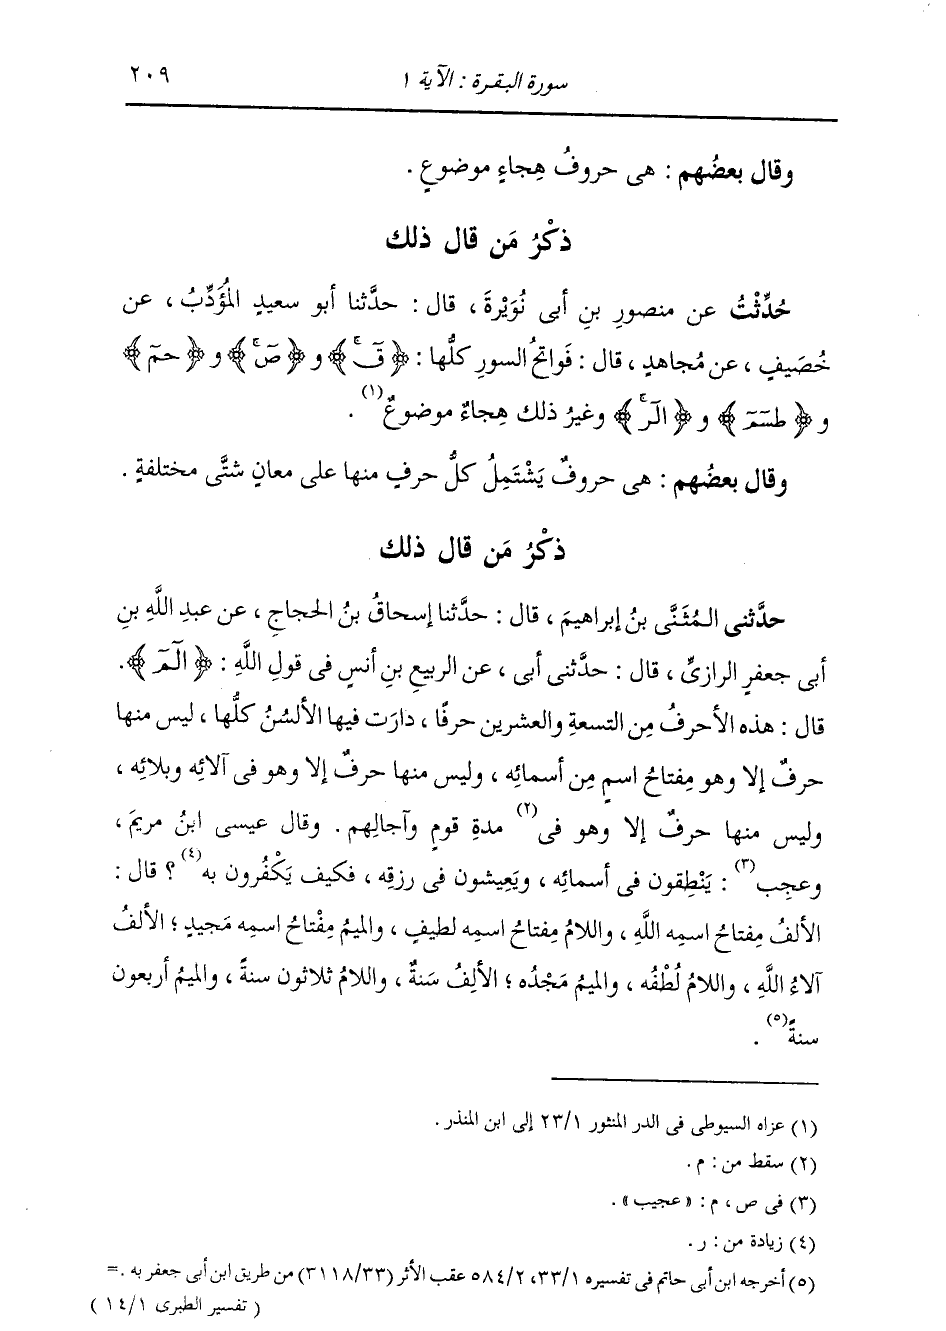 سورة البقرة : الآية ١ ٢٠٩
وقال بعضُهم : هى حروفُ هِجاءٍ موضوعٍ .
ذكْرُ مَن قال ذلك
حُدِّثْتُ عن منصورِ بنِ أبى نُوَيْرةَ ، قال : حدَّثنا أبو سعيدٍ المُؤَدِّبُ ، عن
خُصَيفٍ ، عن مُجاهدٍ ، قال : فَواتحُ السورِ كلُّها : ﴿ قَٓ ﴾ و ﴿ صَٓ ﴾ و ﴿ حمٓ ﴾
و ﴿ طسٓمٓ ﴾ و ﴿ الٓرٓ ﴾ وغيرُ ذلك هِجاءٌ موضوعٌ (١) .
وقال بعضُهم : هى حروفٌ يَشْتَمِلُ كلُّ حرفٍ منها على معانٍ شتَّى مختلفةٍ .
ذكْرُ مَن قال ذلك
حدَّثنى المُثَنَّى بنُ إبراهيمَ ، قال : حدَّثنا إسحاقُ بنُ الحجاجِ ، عن عبدِ اللَّهِ بنِ
أبى جعفرٍ الرازىِّ ، قال : حدَّثنى أبى ، عن الربيعِ بنِ أنسٍ فى قولِ اللَّهِ : ﴿ الٓمٓ ﴾.
قال : هذه الأحرفُ مِن التسعةِ والعشرين حرفًا ، دارَت فيها الألسُنُ كلُّها ، ليس منها
حرفٌ إلا وهو مِفتاحُ اسمٍ مِن أسمائِه ، وليس منها حرفٌ إلا وهو فى آلائِه وبلائِه ،
وليس منها حرفٌ إلا وهو فى (٢) مدةِ قومٍ وآجالِهم . وقال عيسى ابنُ مريمَ ،
وعجِب (٣) : يَنْطِقون فى أسمائِه ، ويَعِيشون فى رزقِه ، فكيف يَكْفُرون به (٤) ؟ قال :
الألفُ مِفتاحُ اسمِه اللَّهِ ، واللامُ مِفتاحُ اسمِه لطيفٍ ، والميمُ مِفْتاحُ اسمِه مَجيدٍ ؛ الألفُ
آلاءُ اللَّهِ ، واللامُ لُطْفُه ، والميمُ مَجْدُه ؛ الألِفُ سَنةٌ ، واللامُ ثلاثون سنةً ، والميمُ أربعون
سنةً (٥) .
(١) عزاه السيوطى فى الدر المنثور ٢٣/١ إلى ابن المنذر .
(٢) سقط من : م .
(٣) فى ص ، م : « عجيب » .
(٤) زيادة من : ر .
(٥) أخرجه ابن أبى حاتم فى تفسيره ٣٣/١، ٥٨٤/٢ عقب الأثر (٣١١٨/٣٣) من طريق ابن أبى جعفر به . =
( تفسير الطبرى ١٤/١ )